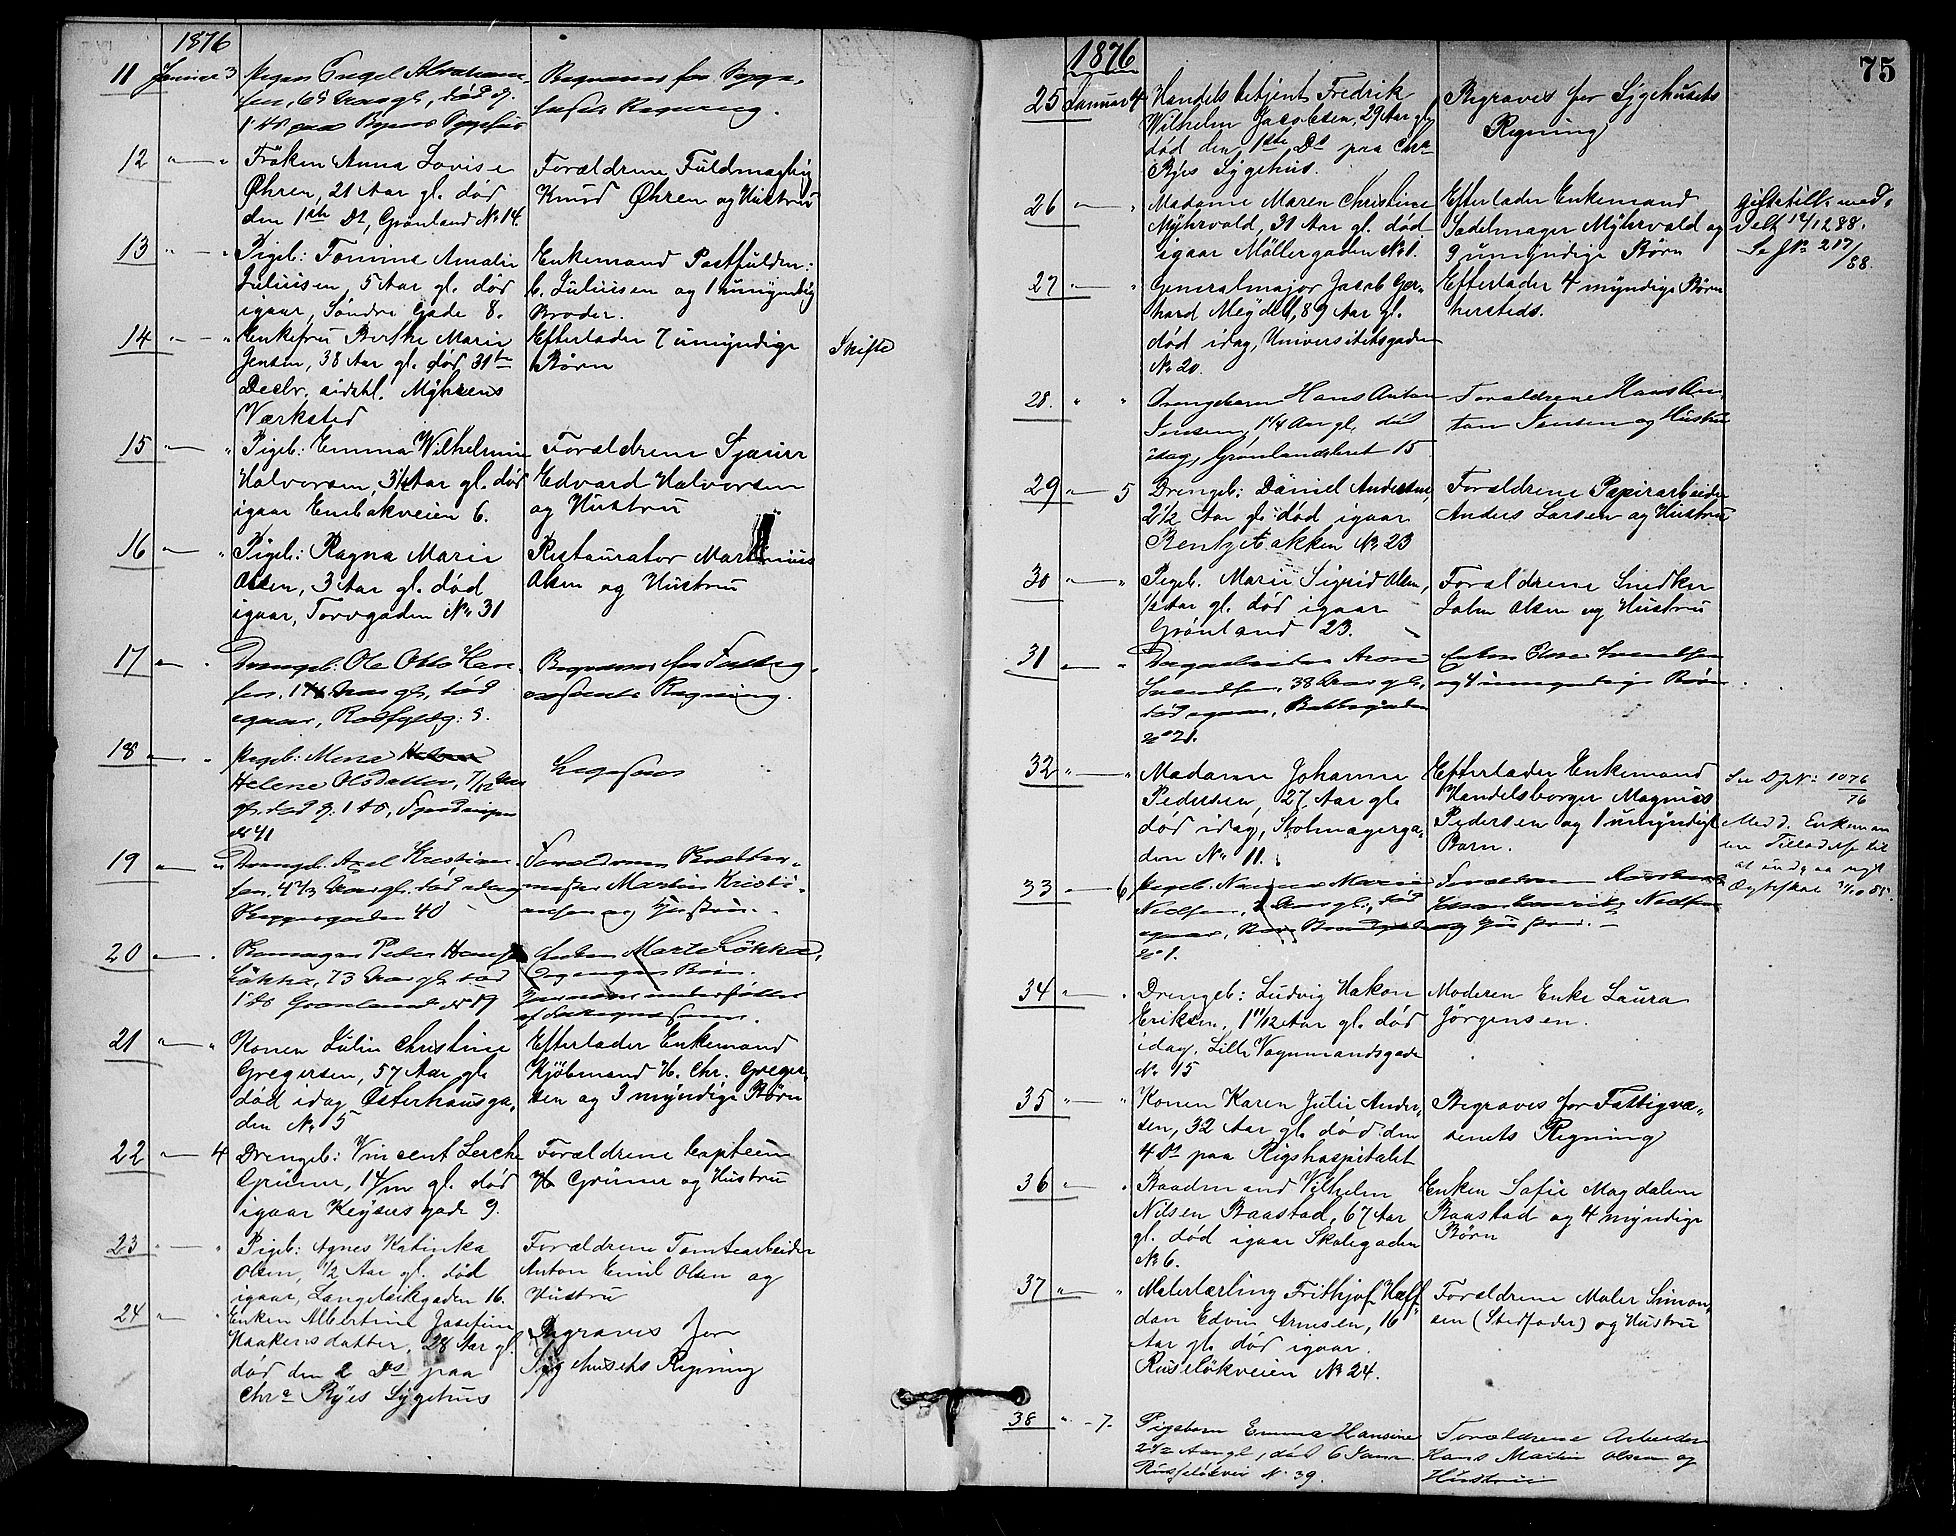 1876
11 Januar 3 Pigen Engel Abraham-
sen, 65 Aar gl, død d.
1 ds paa Byens Sygehus
Begraves for Syge-
husets Regning.
12 " — "
Frøken Anna Lovise
Øhren, 21 Aar gl. død
den 1ste Ds, Grønland No 14.
Forældrene Fuldmægtig
Knud Øhren og Hustru
13 " — "
Pigeb: Tomine Amalie
Juliusen, 5 Aar gl. død
igaar, Søndre Gade 8.
Enkemand Postfuldm:
Juliusen og 1 umyndig
Broder.
14 " — "
Enkefru Berthe Marie
Jensen, 38 Aar gl. død 31te
Decbr. sidstl. Myhrens
Værksted
Efterlader 7 umyndige
Børn
Skifte
15 " — "
Pigeb: Emma Wilhelmine
Halvorsen, 3½ Aar gl. død
igaar Enebakveien 6.
Forældrene
Edvard Halvorsen
og Hustru
16 " — "
Pigeb: Ragna Marie
Olsen, 3 Aar gl. død
igaar, Torvgaden No 31
Restauratør Martinius
Olsen og Hustru
17 " — "
Drengeb: Ole Otto Han-
sen, Aar gl, død
igaar,
Begraves for Fattig-
væsenets Regning.
18 " — "
Pigeb: Mina
Helene Olsdatter, 7/12 Aar
gl. død d. 1 ds,
No 41
19 " — "
Drengeb. Axel Kristian-
sen, Aar gl. død idag
40
Forældrene
Martin Kristi-
ansen og Hustru.
20 " — "
Peder Hansen
Løkka, 73 Aar gl. død
1 ds Grønland No 17
Enken Marte Løkka,
og ingen Børn.
21 " — "
Konen Julie Christine
Gregersen, 57 Aar gl.
død idag Østerhausga-
den No 5
Efterlader Enkemand
Kjøbmand H. Chr. Greger-
sen og 3 myndige Børn
22 " — 4
Drengeb: Vincent Lerche
Grüner, gl. død
igaar Keysersgade 9.
Forældrene Capitein
H Grüner og Hustru
23 " — "
Pigeb: Agnes Katinka
Olsen, ½ Aar gl. død
igaar, Langeleikgaden 16.
Forældrene Tomtearbeider
Anton Emil Olsen og
Hustru
24 " — "
Enken Albertine Josefine
Haakensdatter, 28 Aar gl.
død den 2 Ds paa
Chra Byes Sygehus
Begraves for
Sygehusets Regning
75
1876
25 Januar 4 Handelsbetjent Fredrik
Wilhelm Jacobsen, 29 Aar gl.
død den 1ste Ds paa Chra
Byes Sygehus.
Begraves for Sygehusets
Regning
26 " — "
Madame Maren Christine
Myhrvold, 31 Aar gl. død
igaar Møllergaden No 1.
Efterlader Enkemand
Sadelmager Myhrvold og
9 umyndige Børn
Giftetill. med-
delt 12/12 88.
Se J No 217/88.
27 " — "
Generalmajor Jacob Ger-
hard Meydell, 89 Aar gl.
død idag, Universitetsgaden
No 20.
Efterlader 4 myndige Børn
hersteds.
28. " "
Drengebarn Hans Anton
Jensen, 1¼ Aar gl. død
idag, Grønlandsleret 15
Forældrene Hans An-
ton Jensen og Hustru
29 " — 5
Drengeb: Daniel Andersen,
2½ Aar gl. død igaar
Bentzebakken No 23
Forældrene Papirarbeider
Anders Larsen og Hustru
30 " — "
Pigeb. Marie Sigrid Olsen,
½ Aar gl. død igaar
Grønland 23.
Forældrene Snedker
John Olsen og Hustru
31 " — "
Svendsen, 38 Aar gl.,
død igaar,
No 21.
Enken Svendsen
og 4 umyndige Børn
32 " — "
Madame Johanne
Pedersen, 27 Aar gl.
død idag, Stolmagerga-
den No 11.
Efterlader Enkemand
Handelsborger Magnus
Pedersen og 1 umyndigt
Barn.
Se DJNo: 1076/76
Medd. Enkeman
en Tilladelse til
at indgaa nyt
Ægteskab
33 " — 6
Pigeb. Marie
Nielsen, Aar gl., død
igaar,
No 1.
Forældrene
Nielsen
og Hustru. —
34 " — "
Drengeb: Ludvig Hakon
Eriksen, 1 11/12 Aar gl. død
idag. Lille Vognmandsgade
No 15
Moderen Enke Laura
Jørgensen.
35 " — "
Konen Karen Julie Ander-
sen, 32 Aar gl. død den
4 Ds paa Rigshospitalet
Begraves for Fattigvæ-
senets Regning
36 " — "
Baadmand Vilhelm
Nilsen Baastad, 67 Aar
gl. død igaar Skolegaden
No 6.
Enken Sofie Magdalene
Baastad og 4 myndige
Børn
37 " — "
Malerlærling Frithjof Half-
dan Edvin Arnesen, 16
Aar gl. død igaar.
Ruseløkveien No 24.
Forældrene Maler Simon-
sen (Stedfader) og Hustru
38 " - 7.
Pigebarn Emma Hansine
2½ Aar gl, død 6 Janr
Russeløkvei No 39.
Forældrene Arbeider
Hans Martin Olsen og
Hustru